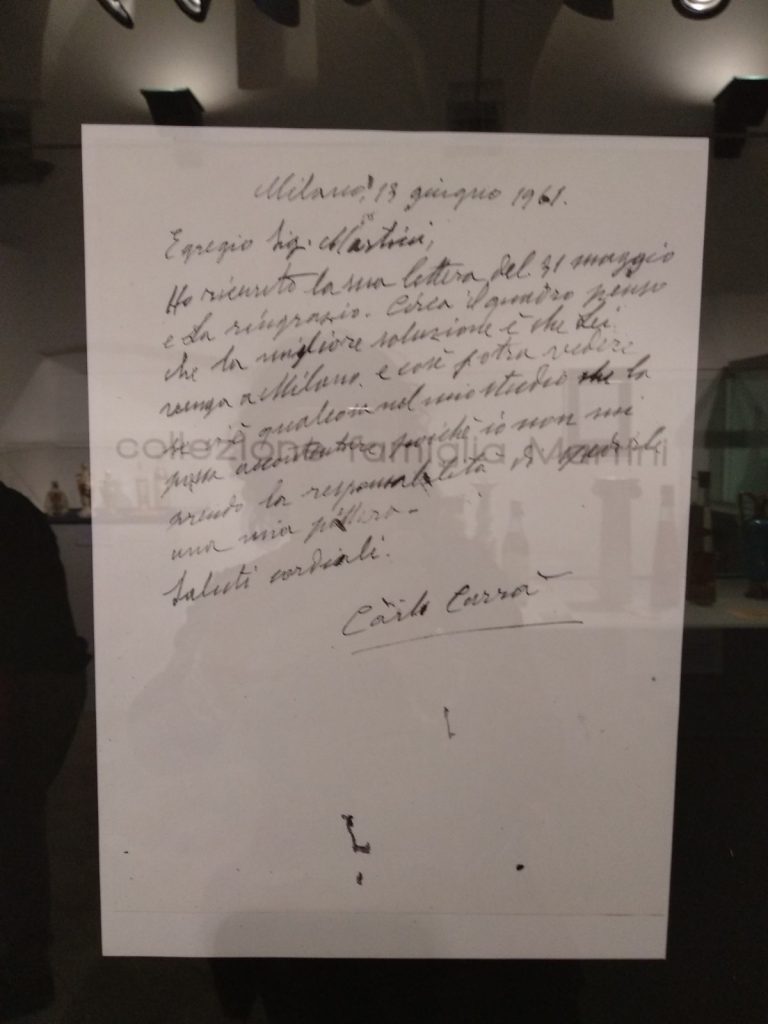 Milano, 13 giugno 1961.
Egregio Sig. Martini,
Ho ricevuto la sua lettera del 31 maggio
e La ringrazio. Circa il quadro penso
che la migliore soluzione è che Lei
venga a Milano e così potrà vedere
se vi è qualcosa nel mio studio che la
possa accontentare poichè io non mi
prendo la responsabilità di spedirle
una mia pittura.
Saluti cordiali.
Carlo Carrà
collezione famiglia Martini